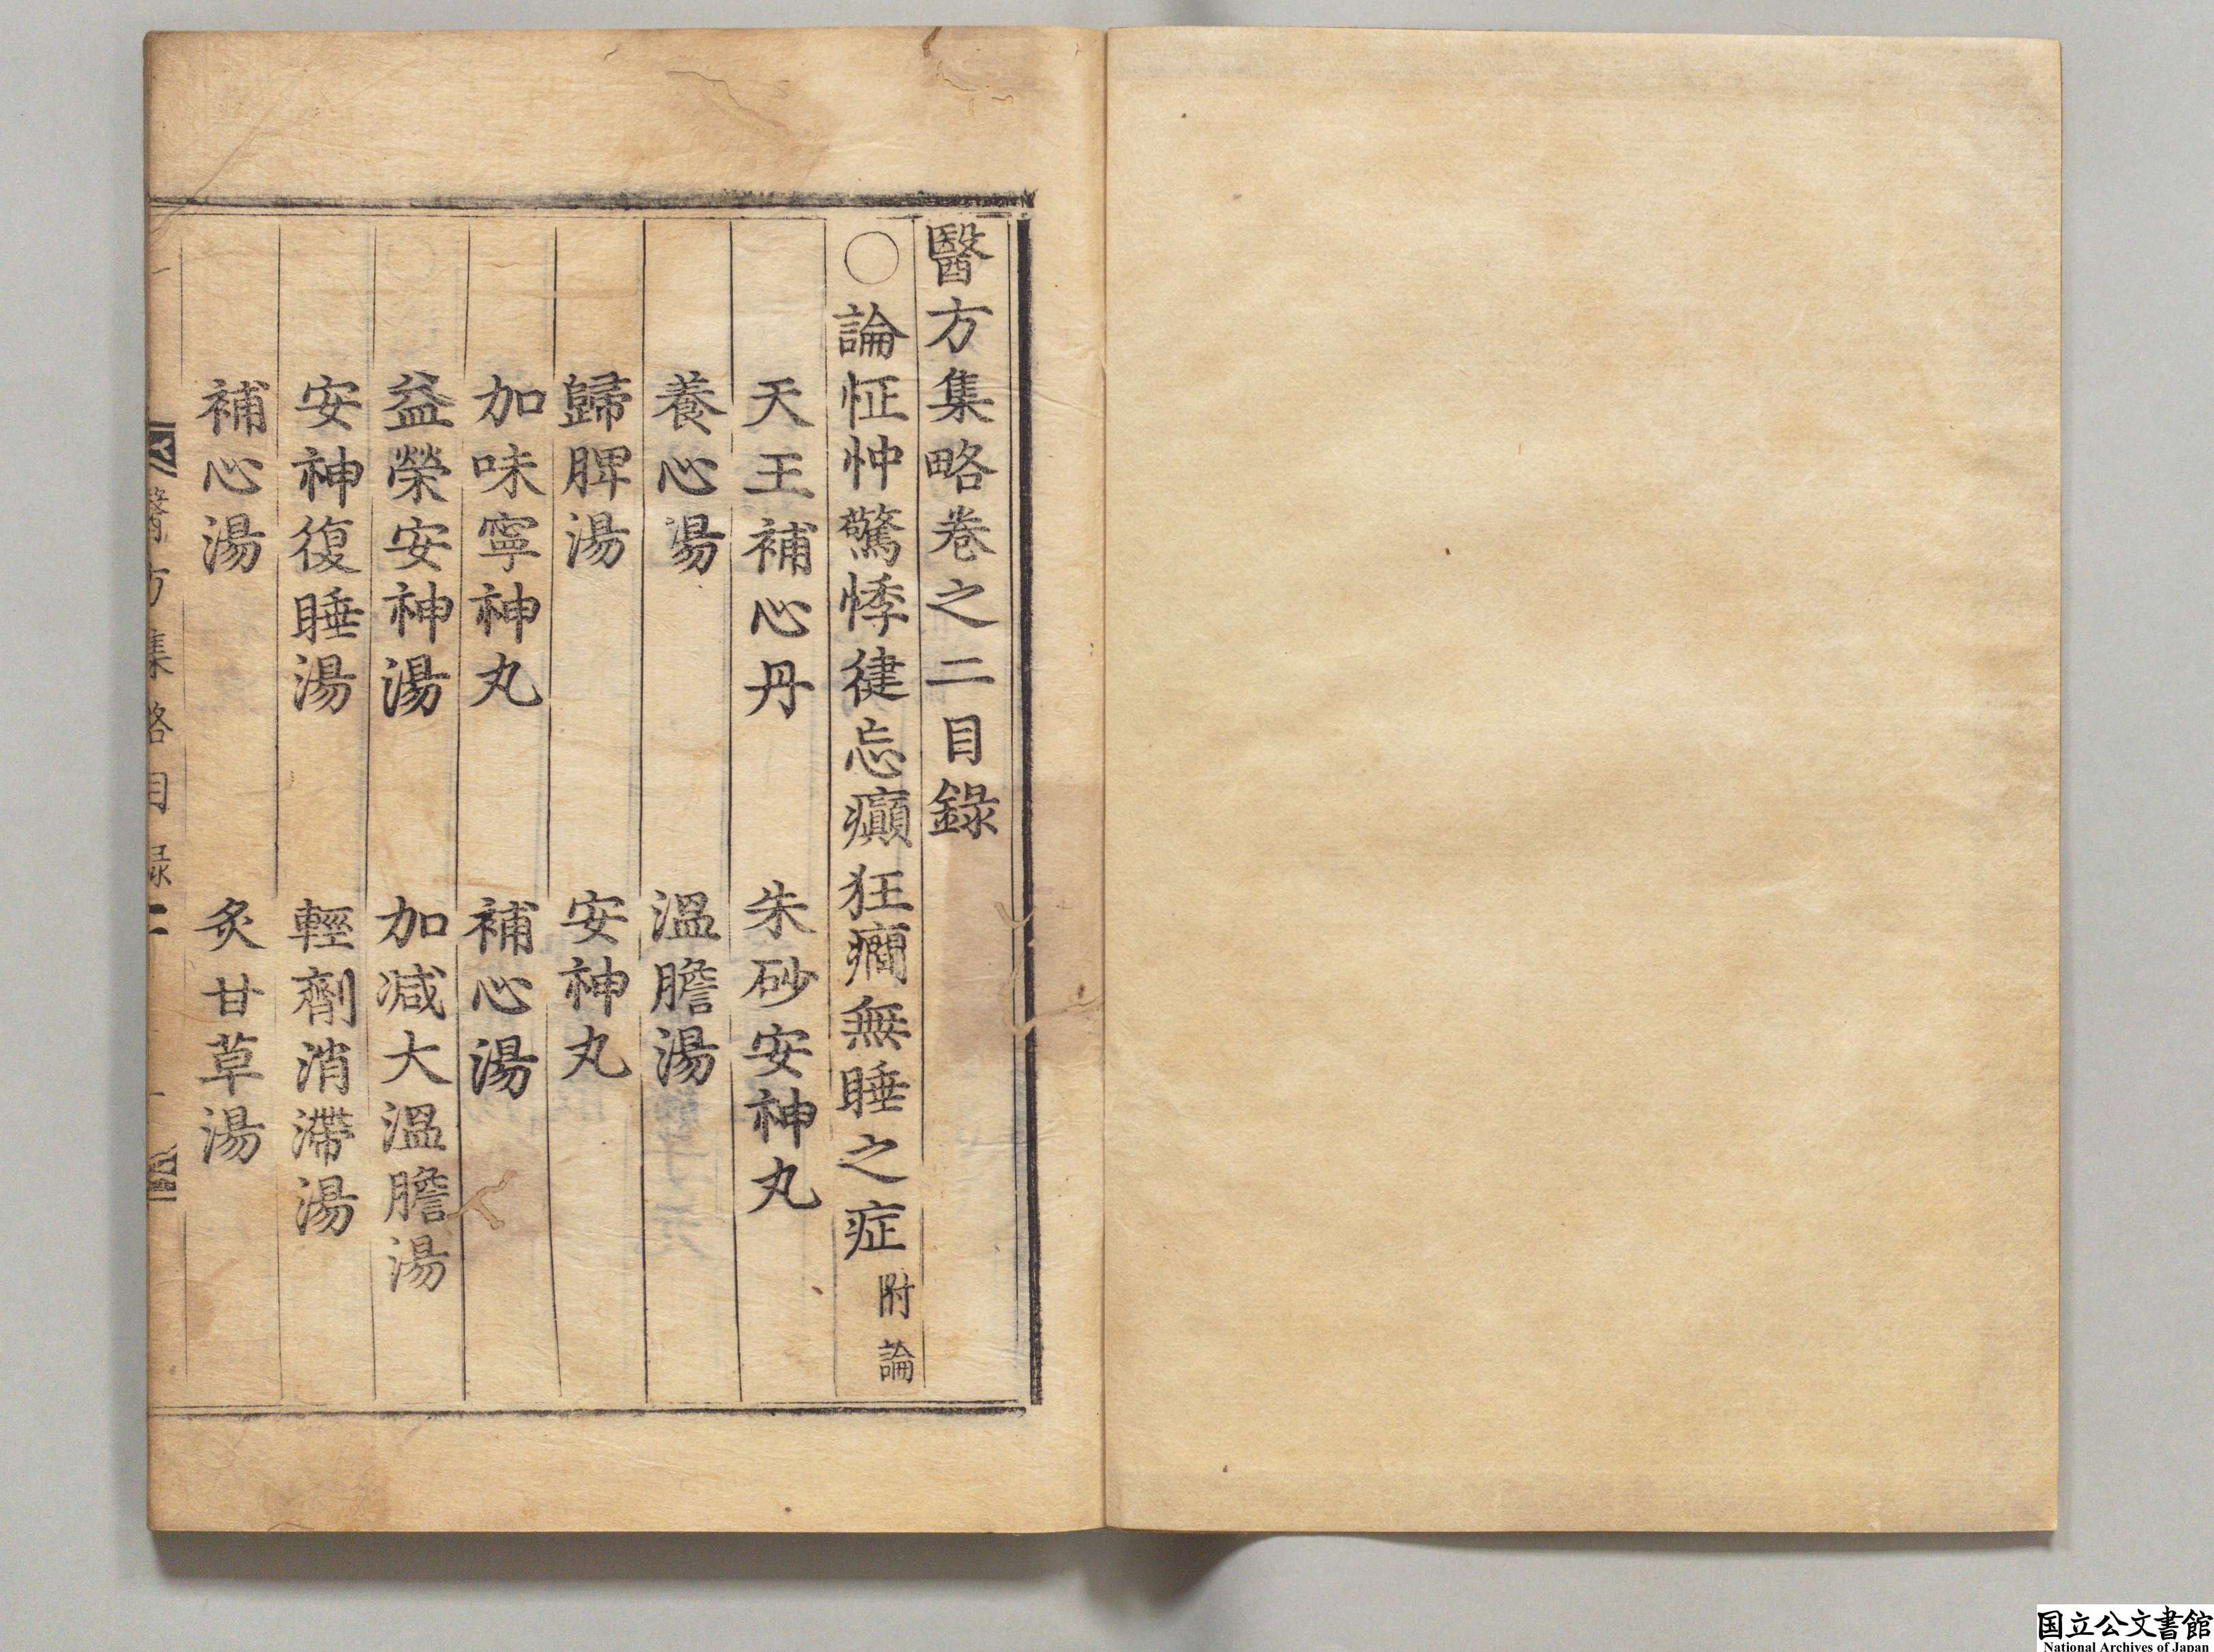 醫方集略卷之二目錄
○論怔忡驚悸徤忘癲狂癎無睡之症附論
天王補心丹　朱砂安神丸
養心湯　溫膽湯
歸脾湯　安神丸
加味寧神丸　補心湯
益榮安神湯　加减大溫膽湯
安神復睡湯　輕劑消滯湯
補心湯　炙甘草湯
醫方集略目錄二　一
国立公文書館
National Archives of Japan